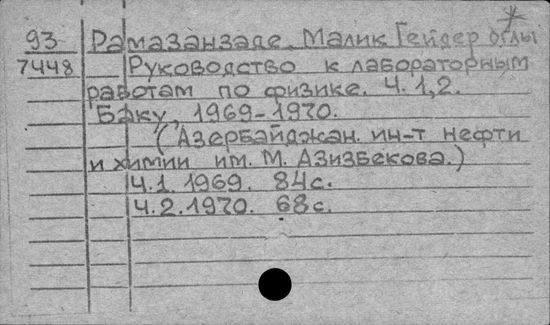 93 Рамазанзаде, Малик Гейдер оглы
7448 Руководство к лабораторным
работам по физике. Ч. 1, 2.
Баку, 1969-1970.
(Азербайджан. ин-т нефти
и химии им. М. Азизбекова.)
Ч.1. 1969. 84с.
Ч.2. 1970. 68с.